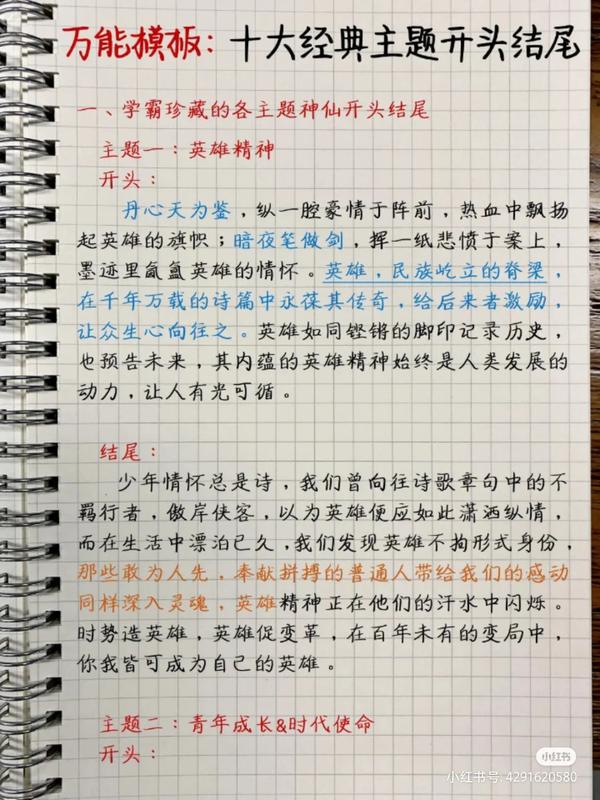 万能模板：十大经典主题开头结尾
一、学霸珍藏的各主题神仙开头结尾
主题一：英雄精神
开头：
丹心天为鉴，纵一腔豪情于阵前，热血中飘扬
起英雄的旗帜；暗夜笔做剑，挥一纸悲愤于案上，
墨迹里氤氲英雄的情怀。英雄，民族屹立的脊梁，
在千年万载的诗篇中永葆其传奇，给后来者激励，
让众生心向往之。英雄如同铿锵的脚印记录历史，
也预告未来，其内蕴的英雄精神始终是人类发展的
动力，让人有光可循。
结尾：
少年情怀总是诗，我们曾向往诗歌章句中的不
羁行者，傲岸侠客，以为英雄便应如此潇洒纵情，
而在生活中漂泊已久，我们发现英雄不拘形式身份，
那些敢为人先，奉献拼搏的普通人带给我们的感动
同样深入灵魂，英雄精神正在他们的汗水中闪烁。
时势造英雄，英雄促变革，在百年未有的变局中，
你我皆可成为自己的英雄。
主题二：青年成长&时代使命
开头：
小红书
小红书号: 4291620580